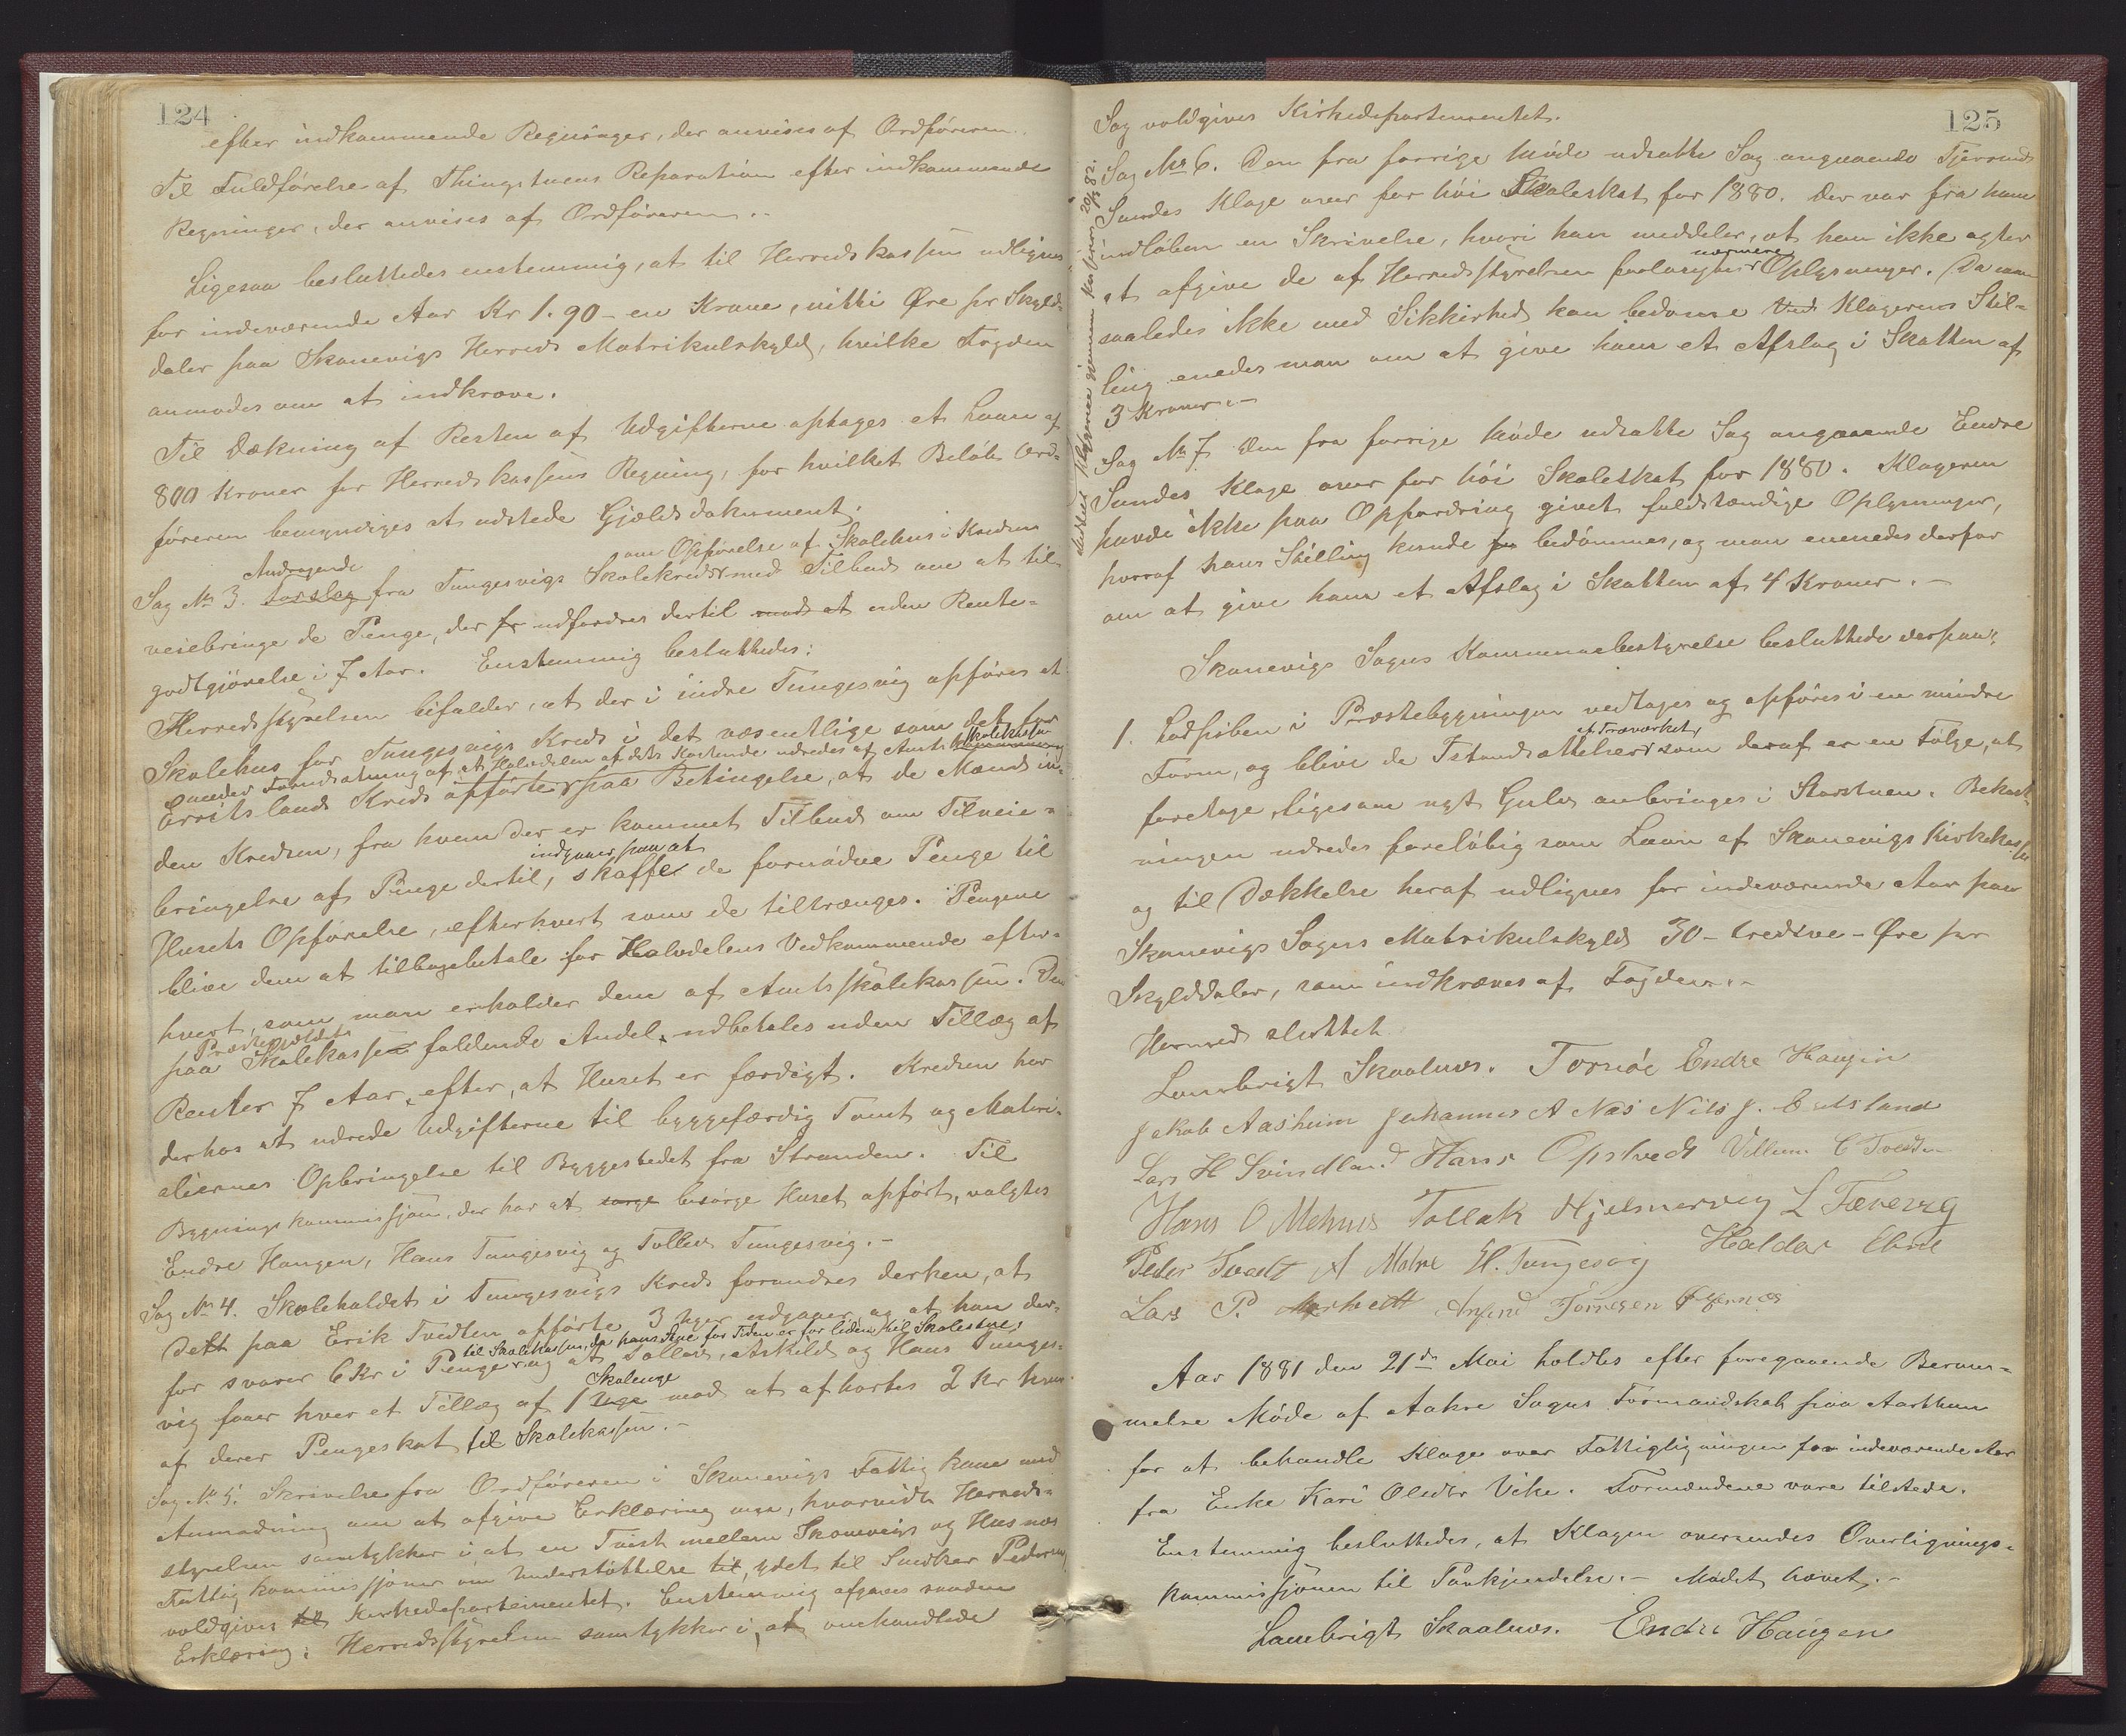 124
efter indkommende Regninger, der anvises af Ordføreren.
Til Fuldførelse af Thingstuens Reparation efter indkommende
Regninger, der anvises af Ordføreren.-
Ligesaa besluttedes enstemmig, at til Herredskassen udlignes
for indeværende Aar Kr 1.90 - en Krone, nitti Øre pr Skyld-
daler paa Skonevigs Herreds Matrikulskyld, hvilke Fogden
anmodes om at indkræve.
Til Dækning af Resten af Udgifterne optages et Laan af
800 Kroner for Herredskassens Regning, for hvilket Beløb Ord-
føreren bemyndiges at udstede Gjældsdokument.
Andragende om Opførelse af Skolehus i Kredsen
Sag No 3. Forslag fra Tungesvigs Skolekreds med Tilbud om at til-
veiebringe de Penge, der for udfordres dertil mod at uden Rente-
godtgjørelse i 7 Aar. Enstemmig besluttedes:
Herredsstyrelsen bifalder, at der i indre Tungesvig opføres et
Skolehus for Tungesvigs Kreds i det væsentlige som det for
under Forudsætning af, at Halvdelen af dets Kostende udredes af Amtsskolekassen
Erritslands Kreds opførte, paa Betingelse, at de Mænd in-
den Kredsen, fra hvem der er kommet Tilbud om Tilveie-
indgaar paa at
bringelse af Penge dertil, skaffe de fornødne Penge til
Husets Opførelse, efterhvert som de tiltrænges. Pengene
blive dem at tilbagebetale for Halvdelens Vedkommende efter-
hvert, som man erholder dem af Amtsskolekassen. Den
Præstegjeldets
paa Skolekassen faldende Andel udbetales uden Tillæg af
Renter 7 Aar, efter, at Huset er færdigt. Kredsen har
derhos at udrede Udgifterne til byggefærdig Tomt og Materi-
aliernes Opbringelse til Byggestedet fra Stranden. Til
Bygningskommissjon, der har at sørge besørge Huset opført, valgtes
Endre Haugen, Hans Tungesvig og Tollev Tungesvig.-
Sag No 4. Skoleholdet i Tungesvigs Kreds forandres derhen, at
dett paa Erik Tvedten opførte 3 Uger udgaar og at han der-
til Skolekassen, da hans Stue for Tiden er for liden til Skolestue,
for svarer 6 Kr i Penge og at Tollev, Askild og Hans Tunges-
Skoleuge
vig faaer hver et Tillæg af 1 Uge mod at afkortes 2 Kr hver
af deres Pengeskat til Skolekassen.-
Sag No 5. Skrivelse fra Ordføreren i Skonevigs Fattigkom med
Anmodning om at afgive Erklæring om, hvorvidt Herreds-
styrelsen samtykker i, at en Tvist mellem Skonevigs og Husnes
Fattigkommissjoner om Understøttelse til, ydet til Snedker Pedersen
voldgives til Kirkedepartementet. Enstemmig afgaves saadan
Erklæring: Herredsstyrelsen samtykker i, at omhandlede
125
Sag voldgives Kirkedepartementet.
Sag No 6. Den fra forrige Møde udsatte Sag angaaende Tjerrand
Sundes Klage over for høi Skoleskat for 1880. Der var fra ham
indløben en Skrivelse, hvori han meddeler, at han ikke agter
nærmere
at afgive de af Herredsstyrelsen forlangte Oplysninger. Da man
saaledes ikke med Sikkerhed kan bedømme Ved Klagerens Stil-
ling enedes man om at give ham et Afslag i Skatten af
3 Kroner.-
Sag No 7. Den fra forrige Møde udsatte Sag angaaende Endre
Sundes Klage over for høi Skoleskat for 1880. Klageren
havde ikke paa Opfordring givet fuldstændige Oplysninger,
hvoraf hans Stilling kunde bedømmes, og man enenedes derfor
om at give ham et Afslag i Skatten af 4 Kroner.-
Skonevigs Sogns Kommunebestyrelse besluttede derpaa:
1. Ladpiben i Præstebygningen nedtages og opføres i en mindre
af Træværket,
Form, og blive de Istandsættelser som deraf er en Følge, at
foretage, ligesom nyt Gulv anbringes i Storstuen. Bekost-
ningen udredes foreløbig som Laan af Skonevigs Kirkekasse
og til Dækkelse heraf udlignes for indeværende Aar paa
Skonevigs Sogns Matrikulskyld 30 - tredive - Øre per
Skylddaler, som indkræves af Fogden.-
Hermed sluttet.
Lambrigt Skaalnes. Tornøe Endre Haugen
Jakob Aasheim Johannes A Næs Nils J.
Lars H Svindland Hans Opstvedt Villum C Tvedten
Hans O Mehus Tollak Hjelmervig L Tæreveg
Peder Tvedt A Mehre H. Tungesvig Haldor Ebne
Lars P.
Aar 1881 den 21de Mai holdtes efter foregaaende Beram-
melse Møde af Aakre Sogns Formandskab paa Aarthun
for at behandle Klage over Fattigligningen for indeværende Aar
fra Enke Kari Olsdtr Vike. Formændene vare tilstede.
Enstemmig besluttedes, at Klagen oversendes Overlignings-
kommissjonen til Paakjendelse.- Mødet hævet.-
Lambrigt Skaalnes. Endre Haugen